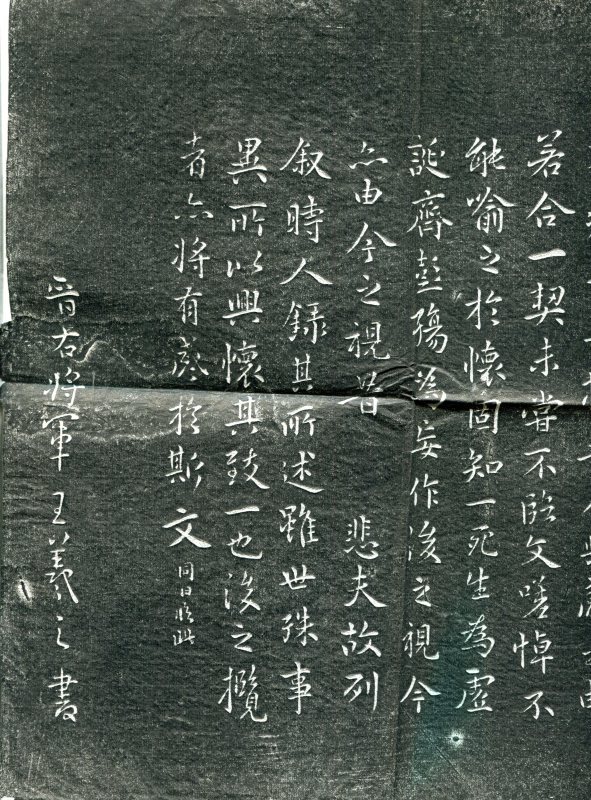 若合一契未嘗不臨文嗟悼不
能喻之於懷固知一死生為虛
誕齊彭殤為妄作後之視今
亦由今之視昔 悲夫故列
叙時人錄其所述雖世殊事
異所以興懷其致一也後之攬
者亦將有感於斯文
同日 此
晉右將軍王羲之書